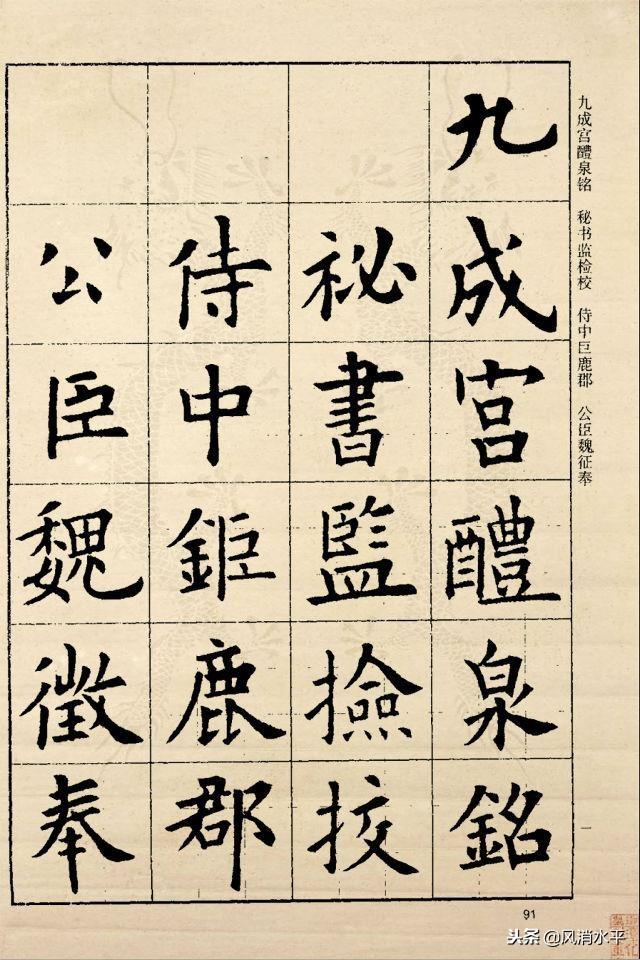 九成宫醴泉铭 秘书监检校 侍中巨鹿郡 公臣魏征奉
九成宮醴泉銘
祕書監撿挍
侍中鉅鹿郡
公臣魏徵奉
91
头条 @风消水平